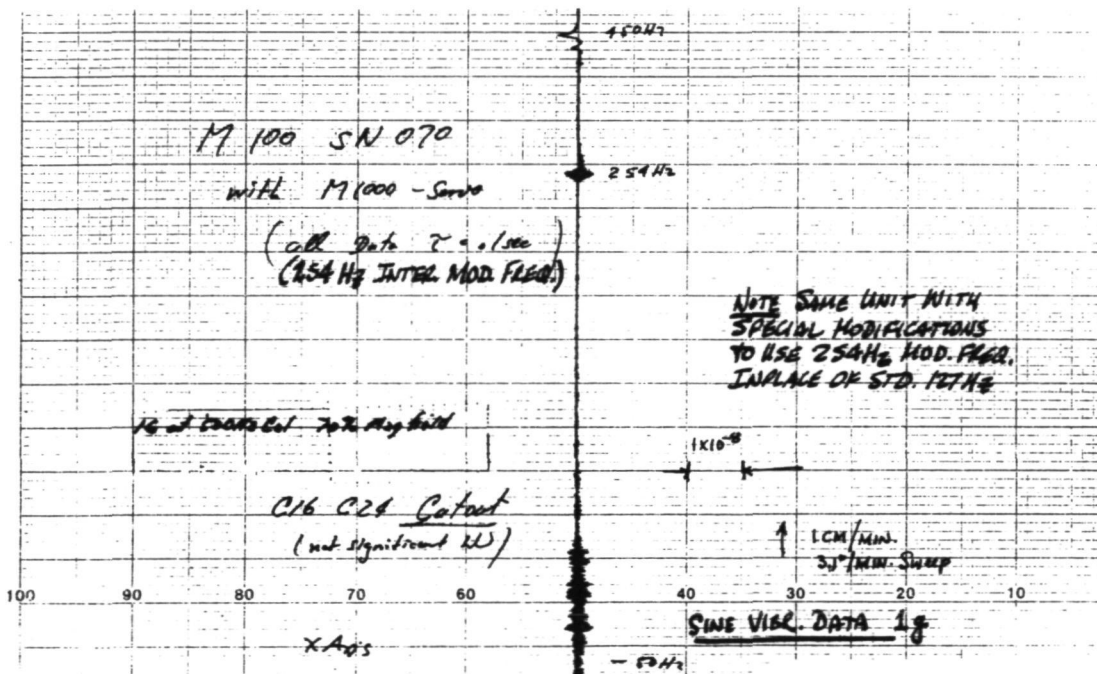 450Hz
M 100 SN 070
254Hz
with M1000 - Servo
(all Data τ = .1 sec)
(254 Hz INTER MOD. FREQ.)
NOTE SAME UNIT WITH
SPECIAL MODIFICATIONS
TO USE 254Hz MOD. FREQ.
INPLACE OF STD. 127Hz
1X10⁻⁸
C16 C24
(not significant
1 CM/MIN.
/MIN. Sweep
100 90 80 70 60 40 30 20 10
SINE VIBR. DATA 1g
X Axis
- 50Hz